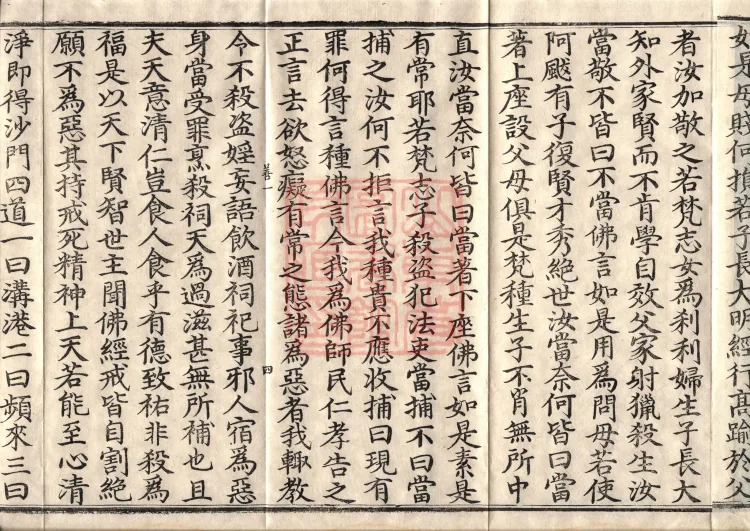 如是母賤何損若子長大明經行高踰於父
者汝加敬之若梵志女為剎利婦生子長大
知外家賢而不肯學自效父家射獵殺生汝
當敬不皆曰不當佛言如是用為問母若使
阿颰有子復賢才秀絕世汝當奈何皆曰當
著上座設父母俱是梵種生子不肖無所中
直汝當奈何皆曰當著下座佛言如是素是
有常耶若梵志子殺盜犯法吏當捕不曰當
捕之汝何不拒言我種貴不應收捕曰現有
罪何得言種佛言今我為佛師民仁孝告之
正言去欲怒癡有常之態諸為惡者我輙教
善一 四
令不殺盜婬妄語飲酒祠祀事邪人宿為惡
身當受罪烹殺祠天為過滋甚無所補也且
夫天意清仁豈食人食乎有德致祐非殺為
福是以天下賢智世主聞佛經戒皆自割絕
願不為惡其持戒死精神上天若能至心清
淨即得沙門四道一曰溝港二曰頻來三曰